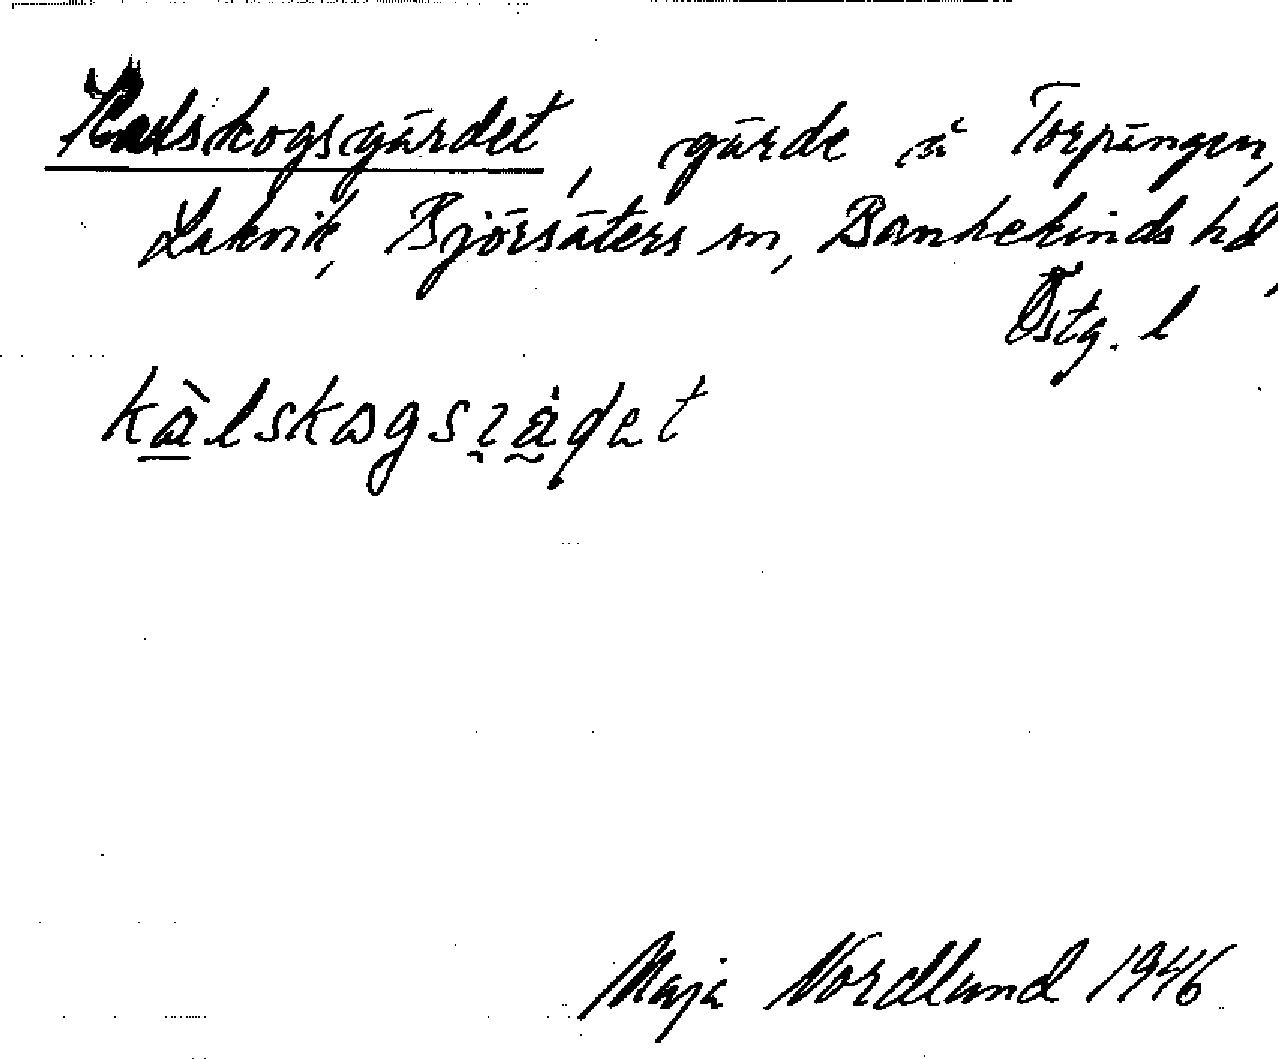 Kalskogsgärdet, gärde å Torpängen,
Lakvik, Björsäters sn, Bankekinds hd,
Östg. l
Maja Nordlund 1946